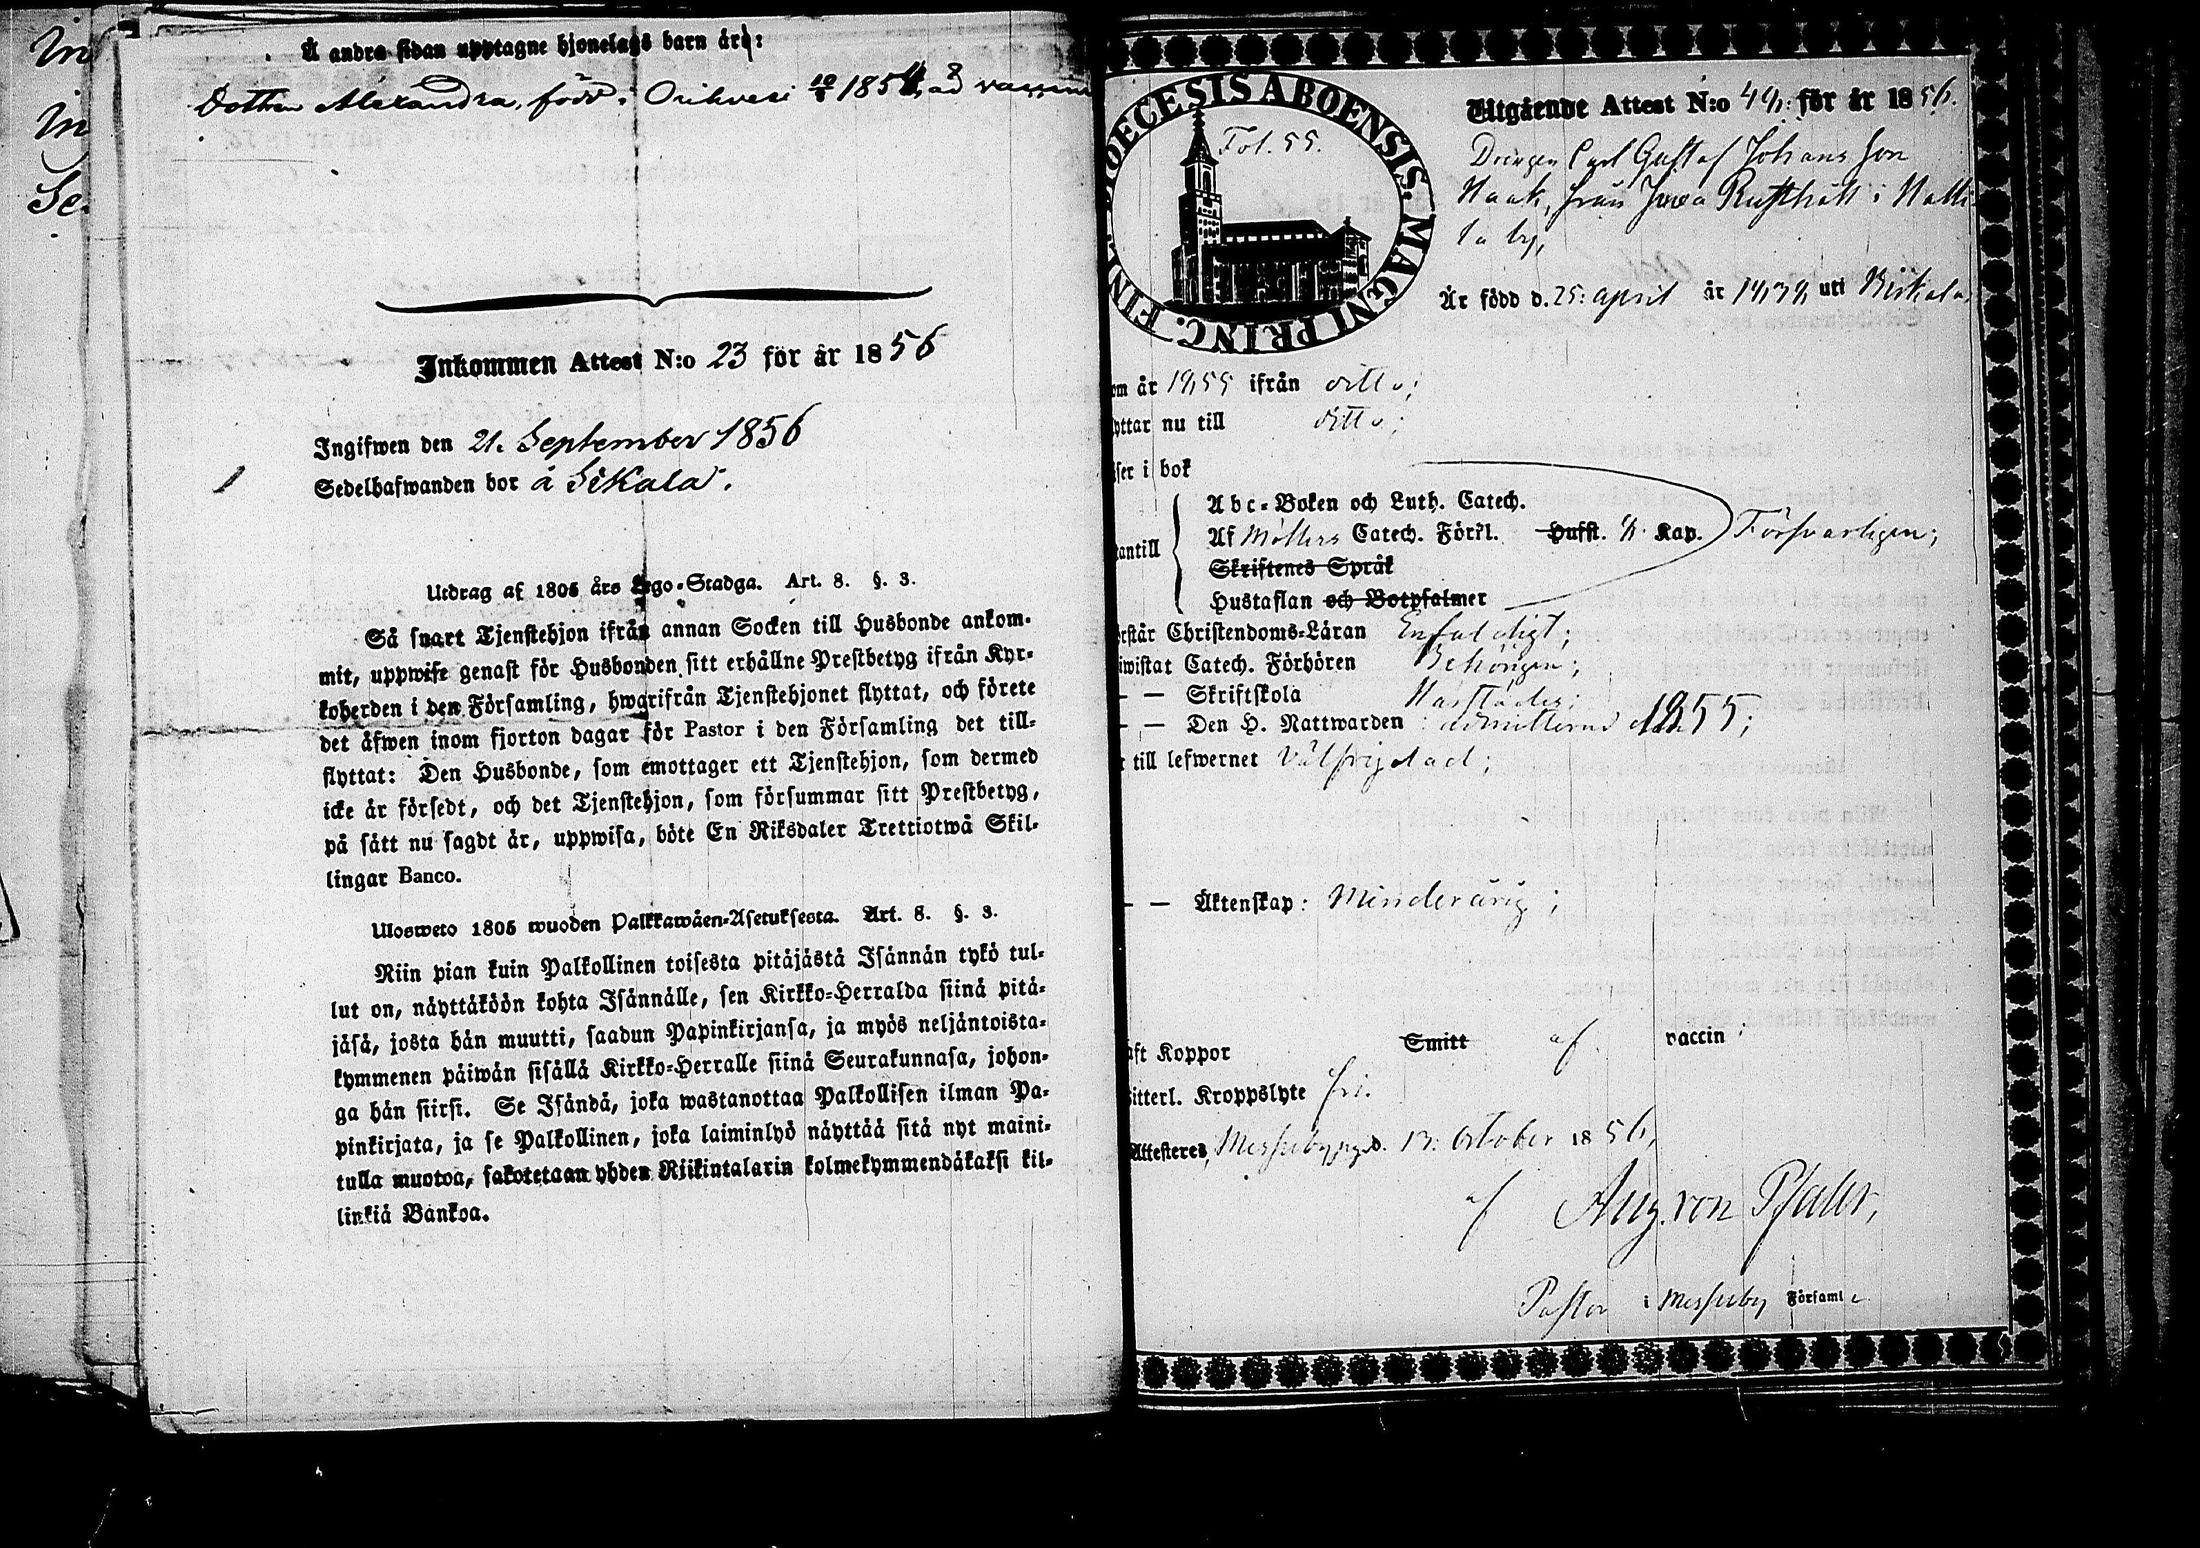 Å andra sidan upptagne hjonelags barn äro:
Dottren Alexandra, född i Orihvesi 10/8 1854,
Inkommen Attest N:o 23 för år 1856
Ingifwen den 21. September 1856
Sedelhafwanden bor å Sikala.
Utdrag af 1805 års Lego-Stadga. Art. 8. §. 3.
Så snart Tjenstehjon ifrån annan Socken till Husbonde ankom-
mit, uppwise genast för Husbonden sitt erhållne Prestbetyg ifrån Kyr-
koherden i den Församling, hwarifrån Tjenstehjonet flyttat, och förete
det äfwen inom fjorton dagar för Pastor i den Församling det till-
flyttat: Den Husbonde, som emottager ett Tjenstehjon, som dermed
icke är försedt, och det Tjenstehjon, som försummar sitt Prestbetyg,
på sätt nu sagdt är, uppwisa, böte En Riksdaler Trettiotwå Skil-
lingar Banco.
Ulosweto 1805 wuoden Palkkawäen-Asetuksesta. Art. 8. §. 3.
Niin pian kuin Palkollinen toisesta pitäjästä Isännän tykö tul-
lut on, näyttäköön kohta Isännälle, sen Kirkko-Herralda siinä pitä-
jäsä, josta hän muutti, saadun Papinkirjansa, ja myös neljäntoista-
kymmenen päiwän sisällä Kirkko-Herralle siinä Seurakunnasa, johon-
ga hän siirsi. Se Isändä, joka wastanottaa Palkollisen ilman Pa-
pinkirjata, ja se Palkollinen, joka laiminlyö näyttää sitä nyt maini-
tulla muotoa, sakotetaan yhden Riikintalarin kolmekymmendäkaksi kil-
linkiä Bankoa.
DIOECESIS ABOENSIS. MAGNI PRINC. FINL.
Fol. 55.
Utgående Attest N:o 44: för år 1856.
Drengen Carl Gustaf Johansson
Haak, från Juva Rusthåll i Halli
la by,
Är född d. 25: april år 1839, uti Birkala,
om år 1855 ifrån ditto;
yttar nu till ditto;
ser i bok
Abc-Boken och Luth. Catech.
Af Möllers Catech. Förkl. Hufst. Kap. Försvarligen;
antill
Skriftenes Språk
Hustaflan och Botpsalmer
rstår Christendoms-Läran Enfaldigt;
iwistat Catech. Förhören Behörigen;
— — Skriftskola
— — Den H. Nattwarden: 1855;
r till lefwernet Välfrejdad;
— — Äktenskap: Minderårig;
aft Koppor Smitt af vaccin;
itterl. Kroppslyte fri.
Attesteres, Messuby pgd. 13. October 1856,
af Aug. von Pfaler,
Pastor i Messuby Församl